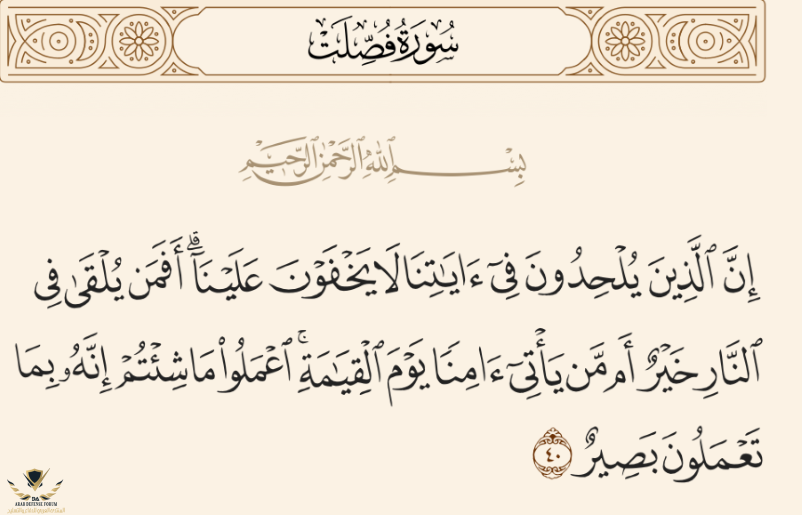 سُورَةُ فُصِّلَتْ
بِسْمِ ٱللَّهِ ٱلرَّحْمَٰنِ ٱلرَّحِيمِ
إِنَّ ٱلَّذِينَ يُلْحِدُونَ فِىٓ ءَايَٰتِنَا لَا يَخْفَوْنَ عَلَيْنَآ ۗ أَفَمَن يُلْقَىٰ فِى
ٱلنَّارِ خَيْرٌ أَم مَّن يَأْتِىٓ ءَامِنًا يَوْمَ ٱلْقِيَٰمَةِ ۚ ٱعْمَلُوا۟ مَا شِئْتُمْ إِنَّهُۥ بِمَا
تَعْمَلُونَ بَصِيرٌ ٤٠
ARAB DEFENSE FORUM